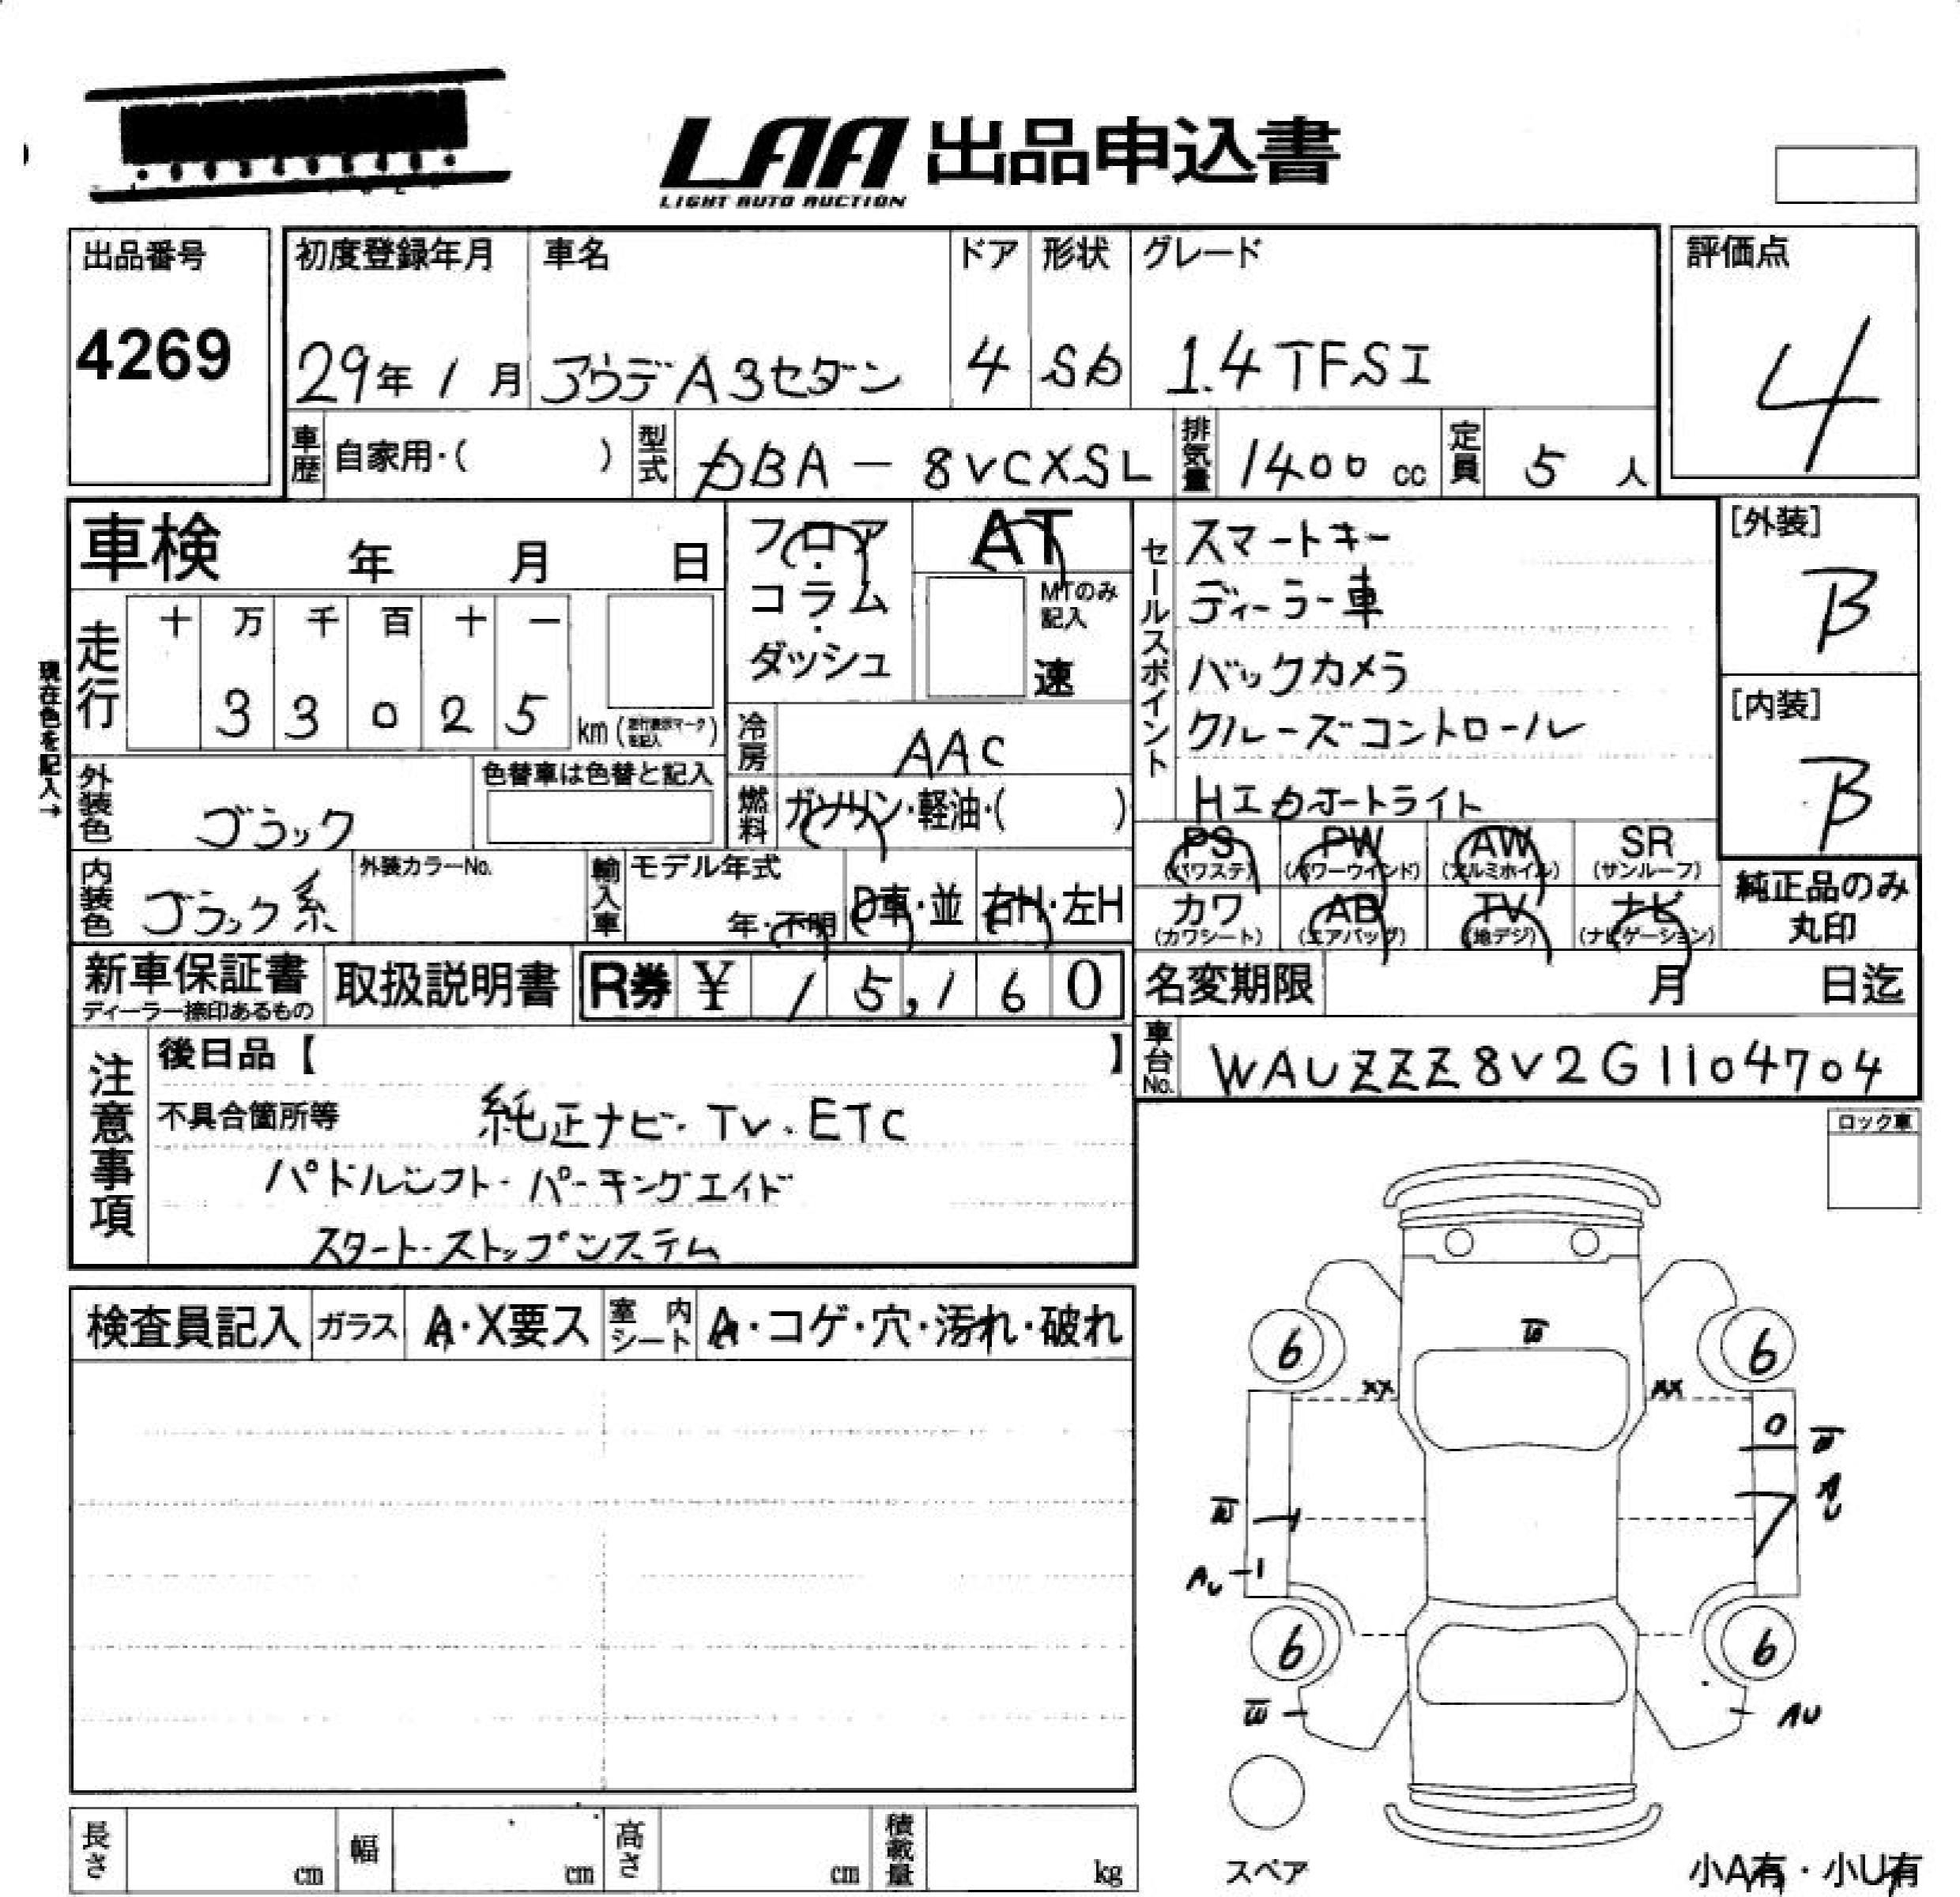 LAA 出品申込書
LIGHT AUTO AUCTION
出品番号
4269
初度登録年月 車名 ドア 形状 グレード
29年 1月 アウデA3セダン 4 Sb 1.4TFSI
評価点
4
車歴 自家用・( ) 型式 DBA-8VCXSL 排気量 1400cc 定員 5人
車検 年 月 日
現在色を記入→
走行 十 万 千 百 十 一
3 3 0 2 5 km
フロア
コラム
ダッシュ
AT
MTのみ記入
速
冷房 AAC
燃料 ガソリン・軽油・( )
外装色 ブラック 色替車は色替と記入
内装色 ブラック系 外装カラーNo.
輸入車 モデル年式 年・不明 D車・並 右H・左H
セールスポイント
スマートキー
ディーラー車
バックカメラ
クルーズコントロール
HIDオートライト
[外装]
B
[内装]
B
PS PW AW SR
(パワステ) (パワーウインド) (アルミホイル) (サンルーフ)
カワ AB TV ナビ
(カワシート) (エアバッグ) (地デジ) (ナビゲーション)
純正品のみ
丸印
新車保証書
ディーラー捺印あるもの
取扱説明書
R券 ¥ 15,160
名変期限 月 日迄
車台No. WAUZZZ8V2G1104704
注意事項
後日品【 】
不具合箇所等 純正ナビ・TV・ETC
パドルシフト・パーキングエイド
スタート・ストップシステム
ロック車
検査員記入 ガラス A・X要ス 室内シート A・コゲ・穴・汚れ・破れ
W
6 6
XX XX
W
AU
W
AU
6 6
W
AU
スペア
小A有・小U有
長さ cm 幅 cm 高さ cm 積載量 kg